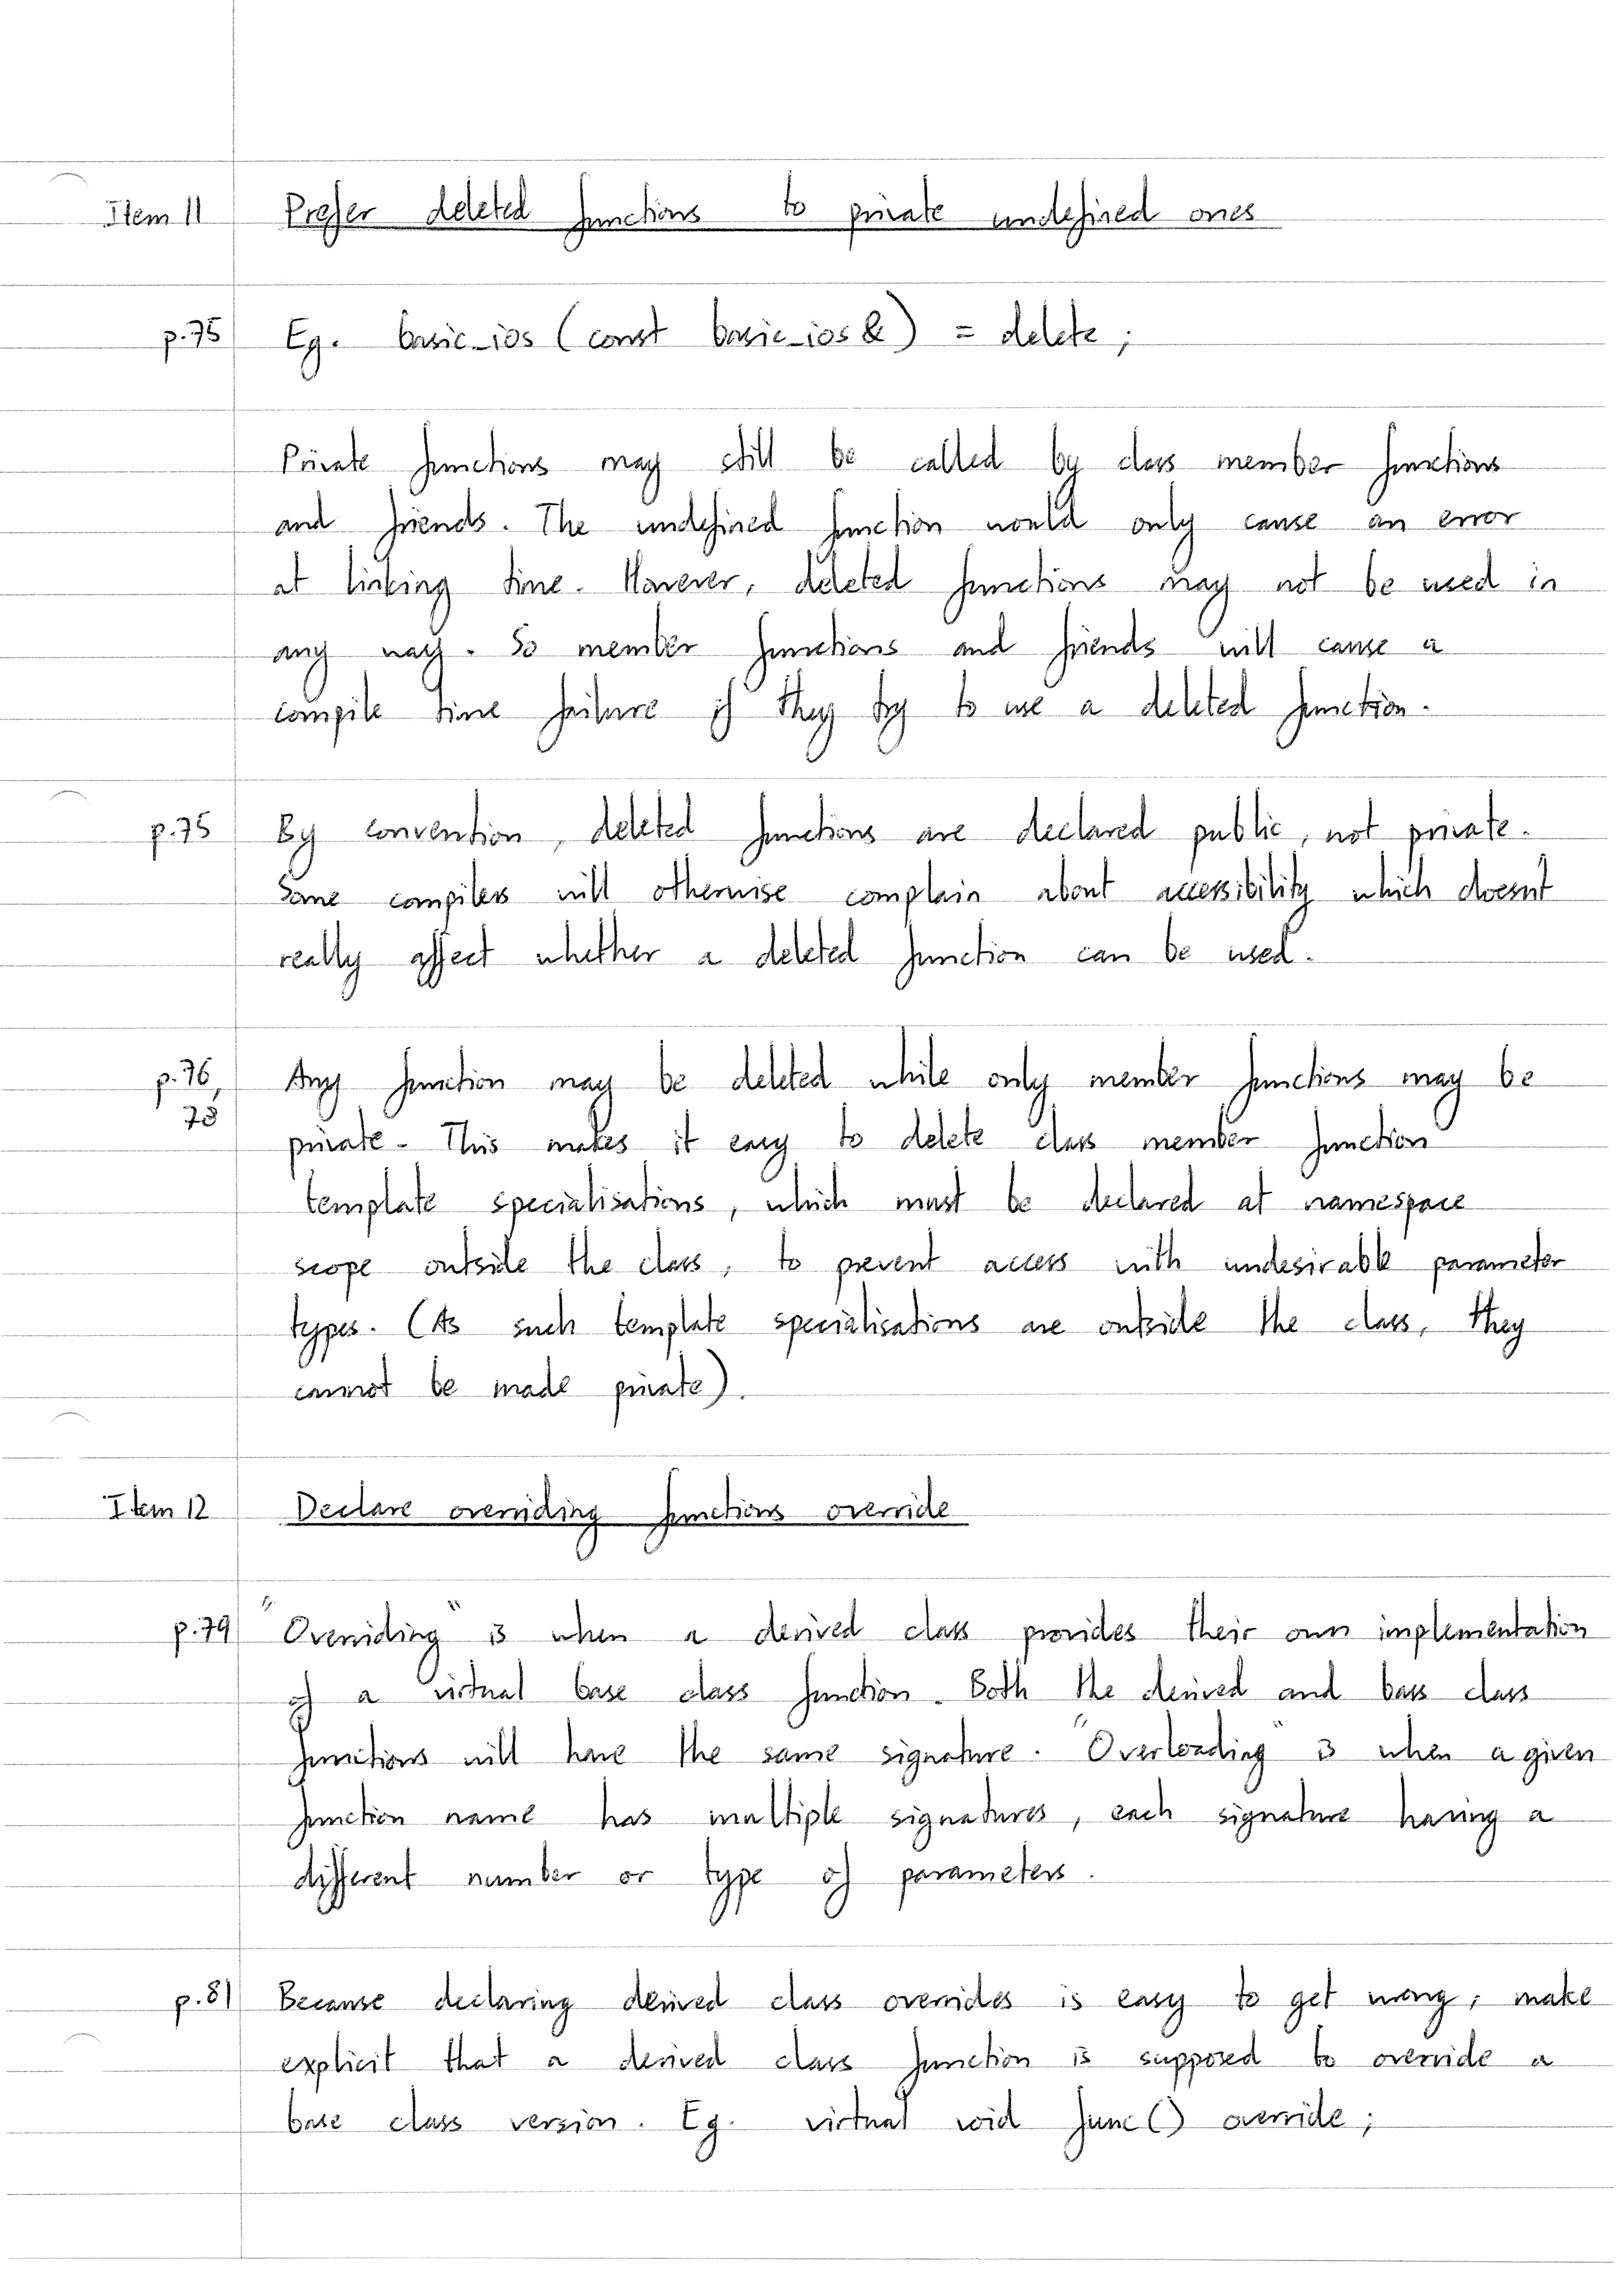 Item 11 Prefer deleted functions to private undefined ones
p.75 Eg. basic_ios (const basic_ios &) = delete;
Private functions may still be called by class member functions
and friends. The undefined function would only cause an error
at linking time. However, deleted functions may not be used in
any way. So member functions and friends will cause a
compile time failure if they try to use a deleted function.
p.75 By convention, deleted functions are declared public, not private.
Some compilers will otherwise complain about accessibility which doesn't
really affect whether a deleted function can be used.
p.76, Any function may be deleted while only member functions may be
78 private. This makes it easy to delete class member function
template specialisations, which must be declared at namespace
scope outside the class, to prevent access with undesirable parameter
types. (As such template specialisations are outside the class, they
cannot be made private).
Item 12 Declare overriding functions override
p.79 "Overriding" is when a derived class provides their own implementation
of a virtual base class function. Both the derived and bass class
functions will have the same signature. "Overloading" is when a given
function name has multiple signatures, each signature having a
different number or type of parameters.
p.81 Because declaring derived class overrides is easy to get wrong, make
explicit that a derived class function is supposed to override a
base class version. Eg. virtual void func() override;